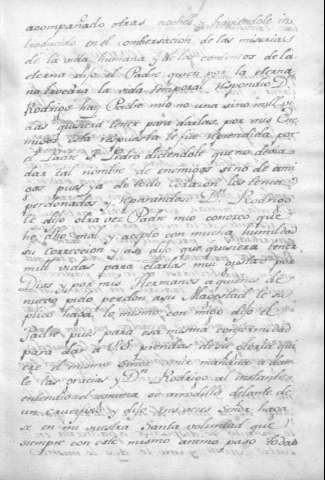 acompañado otras noches, y haviendole in
troducido en el combersacion de las miserias
de la vida humana y de los contentos de la
eterna dijo el Padre, quien por la eterna
no trocára la vida temporal, respondio Dⁿ
Rodrigo hay Padre mio no una sino mill vi
das quisiera tener para darlas por mis Ene
migos esta respuesta le fue reprendida por
el Padre Pedro diciendole que no devia
dar tal nombre de enemigos sino de ami
gos pues ya de todo corazon los tenia
perdonados y reparandose Dⁿ Rodrigo
le dijo otra vez Padre mio conosco que
he dho mal, y acepto con mucha humildad
su correccion, y asi digo que quisiera tener
mill vidas para darlas muy gustoso por
Dios y por mis Hermanos a quienes de
nuevo pido perdon, a su Magestad le su
plico haga lo mismo con migo dijo el
Padre pues para esa misma conformidad
para dar à V.S. prendas de su gloria qui
ere el mismo Señor venir mañana a dar
le las gracias y Dⁿ Rodrigo al instante
se arrodilló delante de
un crucifixo y dijo mil veces Señor haga
se en mi vuestra Santa voluntad que
siempre con este mismo animo pasó todas